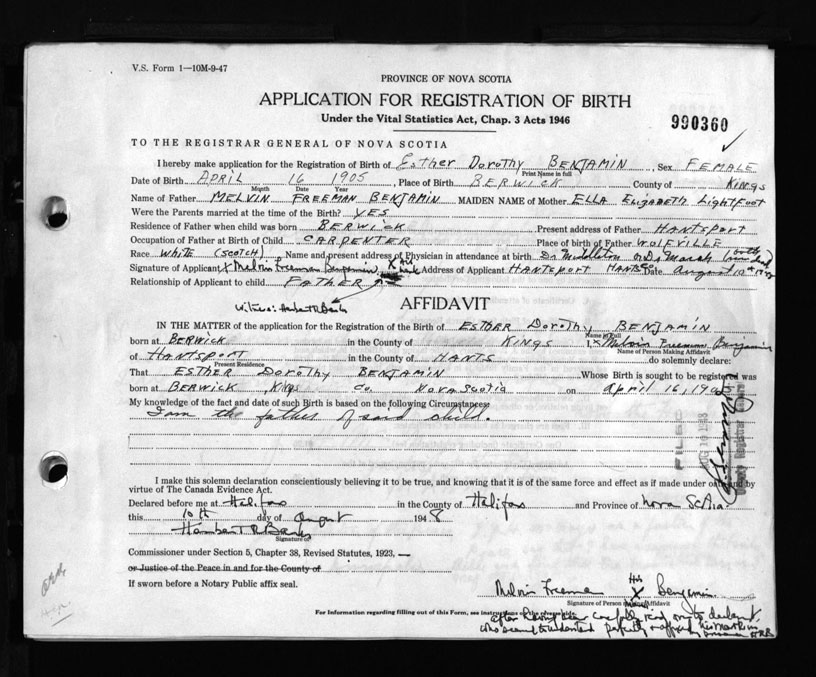 V.S. Form 1—10M-9-47
PROVINCE OF NOVA SCOTIA
APPLICATION FOR REGISTRATION OF BIRTH
Under the Vital Statistics Act, Chap. 3 Acts 1946
990360
TO THE REGISTRAR GENERAL OF NOVA SCOTIA
I hereby make application for the Registration of Birth of Esther Dorothy BENJAMIN, Sex FEMALE
Print Name in full
Date of Birth APRIL 16 1905, Place of Birth BERWICK County of KINGS
Month Date Year
Name of Father MELVIN FREEMAN BENJAMIN MAIDEN NAME of Mother ELLA Elizabeth Lightfoot
Were the Parents married at the time of the Birth? YES
Residence of Father when child was born BERWICK Present address of Father HANTSPORT
Occupation of Father at Birth of Child CARPENTER Place of birth of Father WOLFVILLE
Race WHITE (SCOTCH) Name and present address of Physician in attendance at birth Dr Middleton or Dr Marsh (both
Signature of Applicant X Melvin Freeman Benjamin X His mark Address of Applicant HANTSPORT HANTS Co Date August 10th
Relationship of Applicant to child FATHER
Witness: Herbert R Banks
AFFIDAVIT
IN THE MATTER of the application for the Registration of the Birth of ESTHER Dorothy BENJAMIN
Name in Full
born at BERWICK in the County of KINGS I, X Melvin Freeman Benjamin
Name of Person Making Affidavit
of HANTSPORT in the County of HANTS do solemnly declare:
Present Residence
That ESTHER Dorothy BENJAMIN Whose Birth is sought to be registered was
born at BERWICK Kings Co. Nova Scotia on April 16, 1905
My knowledge of the fact and date of such Birth is based on the following Circumstances:
I am the father of said child.
FILED
AUG 10 1948
I make this solemn declaration conscientiously believing it to be true, and knowing that it is of the same force and effect as if made under oath and by
virtue of The Canada Evidence Act.
Declared before me at Halifax in the County of Halifax and Province of Nova Scotia
this 10th day of August 1948
Herbert R Banks
Signature of
Commissioner under Section 5, Chapter 38, Revised Statutes, 1923, —
or Justice of the Peace in and for the County of
If sworn before a Notary Public affix seal.
Melvin Freeman His X Benjamin
Signature of Person Making Affidavit
For Information regarding filling out of this Form, see instructions on the reverse side
after having been carefully read over to declarant,
who seemed to understand perfectly & affixed his mark in my presence HRB